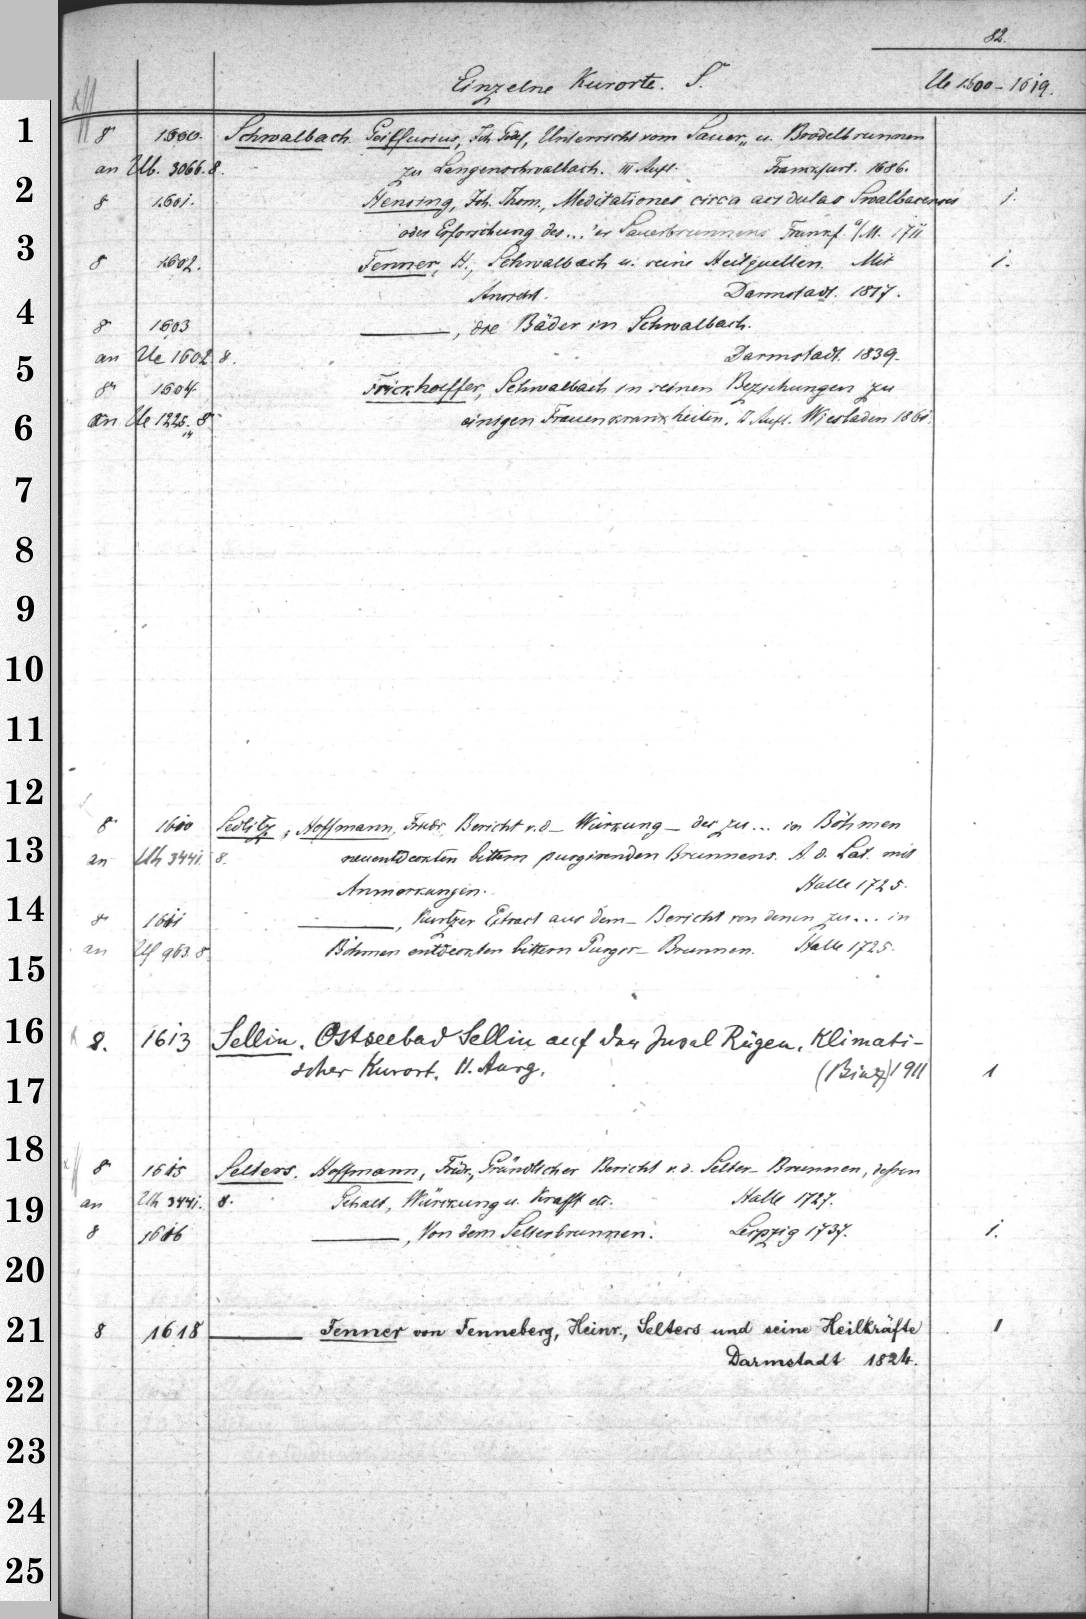 82.
Einzelne Kurorte. S. Ue 1600-1619.
1 8 1600. Schwalbach. Geilfusius, Joh. Grief, Unterricht vom Sauer„ u. Brodelbrunnen
an Ub. 3066. 8. zu Langenschwalbach. III Aufl. Frankfurt. 1686.
2 8 1601. Hensing, Joh. Thom., Meditationes circa acidulas Swalbacenses 1.
oder Erforschung des...'er Sauerbrunnens Frankf. a/M. 1711
3 8 1602. Fenner, H., Schwalbach u. seine Heilquellen. Mit 1.
4 Ansicht. Darmstadt. 1817.
8 1603 ——, die Bäder in Schwalbach.
5 an Ue 1602. 8. Darmstadt. 1839.
8 1604 Frickhoeffer, Schwalbach in seinen Beziehungen zu
6 an Ue 1225. 8 einigen Frauenkrankheiten. II Aufl. Wiesbaden 1861.
7
8
9
10
11
12
8 1610 Sedlitz, Hoffmann, Friedr. Bericht v. d- Würkung- des zu... in Böhmen
13 an Uh 3441. 8. neuentdeckten bittern purgirenden Brunnens. A. d. Lat. mit
Anmerkungen. Halle 1725.
14 8 1611 ——, Kurtzer Extract aus dem- Bericht von denen zu... in
15 an Uf 963. 8. Böhmen entdeckten bittern Purgir- Brunnen. Halle 1725.
16 8. 1613 Sellin. Ostseebad Sellin auf der Insel Rügen. Klimati-
17 scher Kurort. II. Aufg. (Binz) 1911 1
18 8 1615 Selters. Hoffmann, Fridr., Gründlicher Bericht v. d. Selter- Brunnen, dessen
19 an Uh 3441. 8. Gehalt, Würkung u. Krafft etc. Halle 1727.
8 1616 ——, Von dem Selterbrunnen. Leipzig 1737. 1.
20
21 8 1618 —— Fenner von Fenneberg, Heinr., Selters und seine Heilkräfte 1
Darmstadt 1824.
22
23
24
25